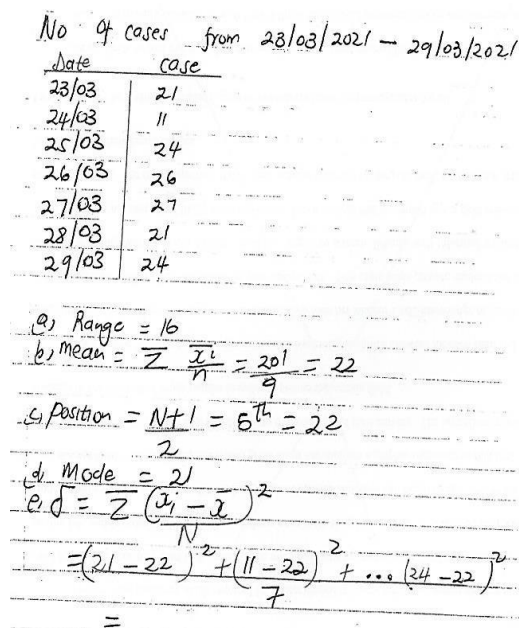 No of cases from 23/03/2021 – 29/03/2021
Date case
23/03 21
24/03 11
25/03 24
26/03 26
27/03 27
28/03 21
29/03 24
a) Range = 16
b) mean = Σ xi/n = 201/9 = 22
c) Position = N+1/2 = 5th = 22
d) Mode = 21
e) σ = Σ (xi – x̄)²/N
= (21 – 22)² + (11 – 22)² + ... (24 – 22)²/7
=